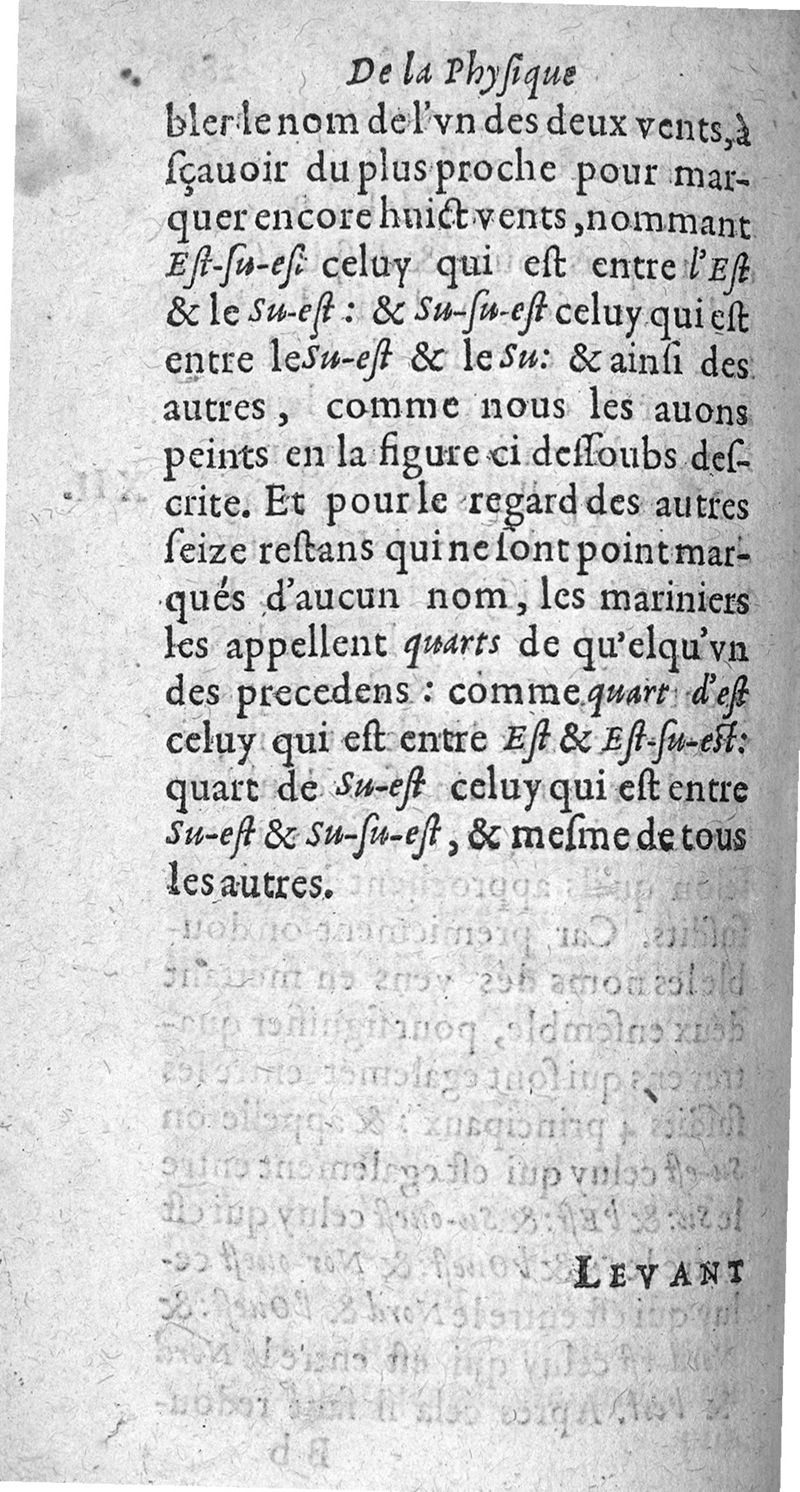 De la Phyſique
bler le nom de l'vn des deux vents, à
ſçauoir du plus proche pour mar-
quer encore huict vents, nommant
Eſt-ſu-eſt celuy qui eſt entre l'Eſt
& le Su-eſt : & Su-ſu-eſt celuy qui eſt
entre le Su-eſt & le Su: & ainſi des
autres, comme nous les auons
peints en la figure ci deſſoubs deſ-
crite. Et pour le regard des autres
ſeize reſtans qui ne ſont point mar-
qués d'aucun nom, les mariniers
les appellent quarts de qu'elqu'vn
des precedens : comme quart d'eſt
celuy qui eſt entre Eſt & Eſt-ſu-eſt:
quart de Su-eſt celuy qui eſt entre
Su-eſt & Su-ſu-eſt, & meſme de tous
les autres.
LEVANT